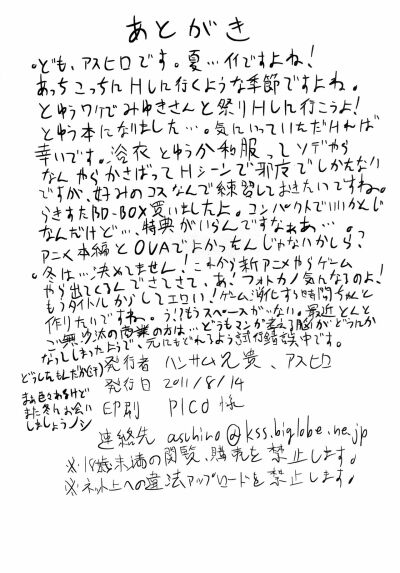 あとがき
。ども、アスヒロです。夏…イイですよね!
あっちこっちにHしに行くような季節ですよね。
とゆうワケでみゆきさんと祭りHしに行こうよ!
とゆう本になりました…。気にいっていただければ
幸いです。浴衣とゆうか和服ってソデやら
なんやらかさばってHシーンで邪魔でしかたない
ですが、好みのコスなんで練習しておきたいですね。
らきすたBD-BOX買いましたよ。コンパクトでいいかんじ
なんだけど…、特典がいらんですなぁあ…。
アニメ本編とOVAでよかったんじゃないかしら?
。冬は…決めてません!これから新アニメやらゲーム
やら出てくるんでさてさて、あ!フォトカノ気んなるのよ!
もうタイトルからしてエロい!ゲーム進化する時間ちゃんと
作りたいですね。う!?もうスペースがない。最近とんと
ご無沙汰の商業の方は…どうもマンガ考える脳がどうにか
なってしまったようで、元にもどれるよう試行錯誤中です。
どうしたもんだか(汗)
まぁ色々あるけど
また冬お会い
しましょうノシ
発行者 ハンサム兄貴、アスヒロ
発行日 2011/8/14
印刷 PICO様
連絡先 asuhiro@kss.biglobe.ne.jp
※18歳未満の閲覧、購売を禁止します。
※ネット上への違法アップロードを禁止します。